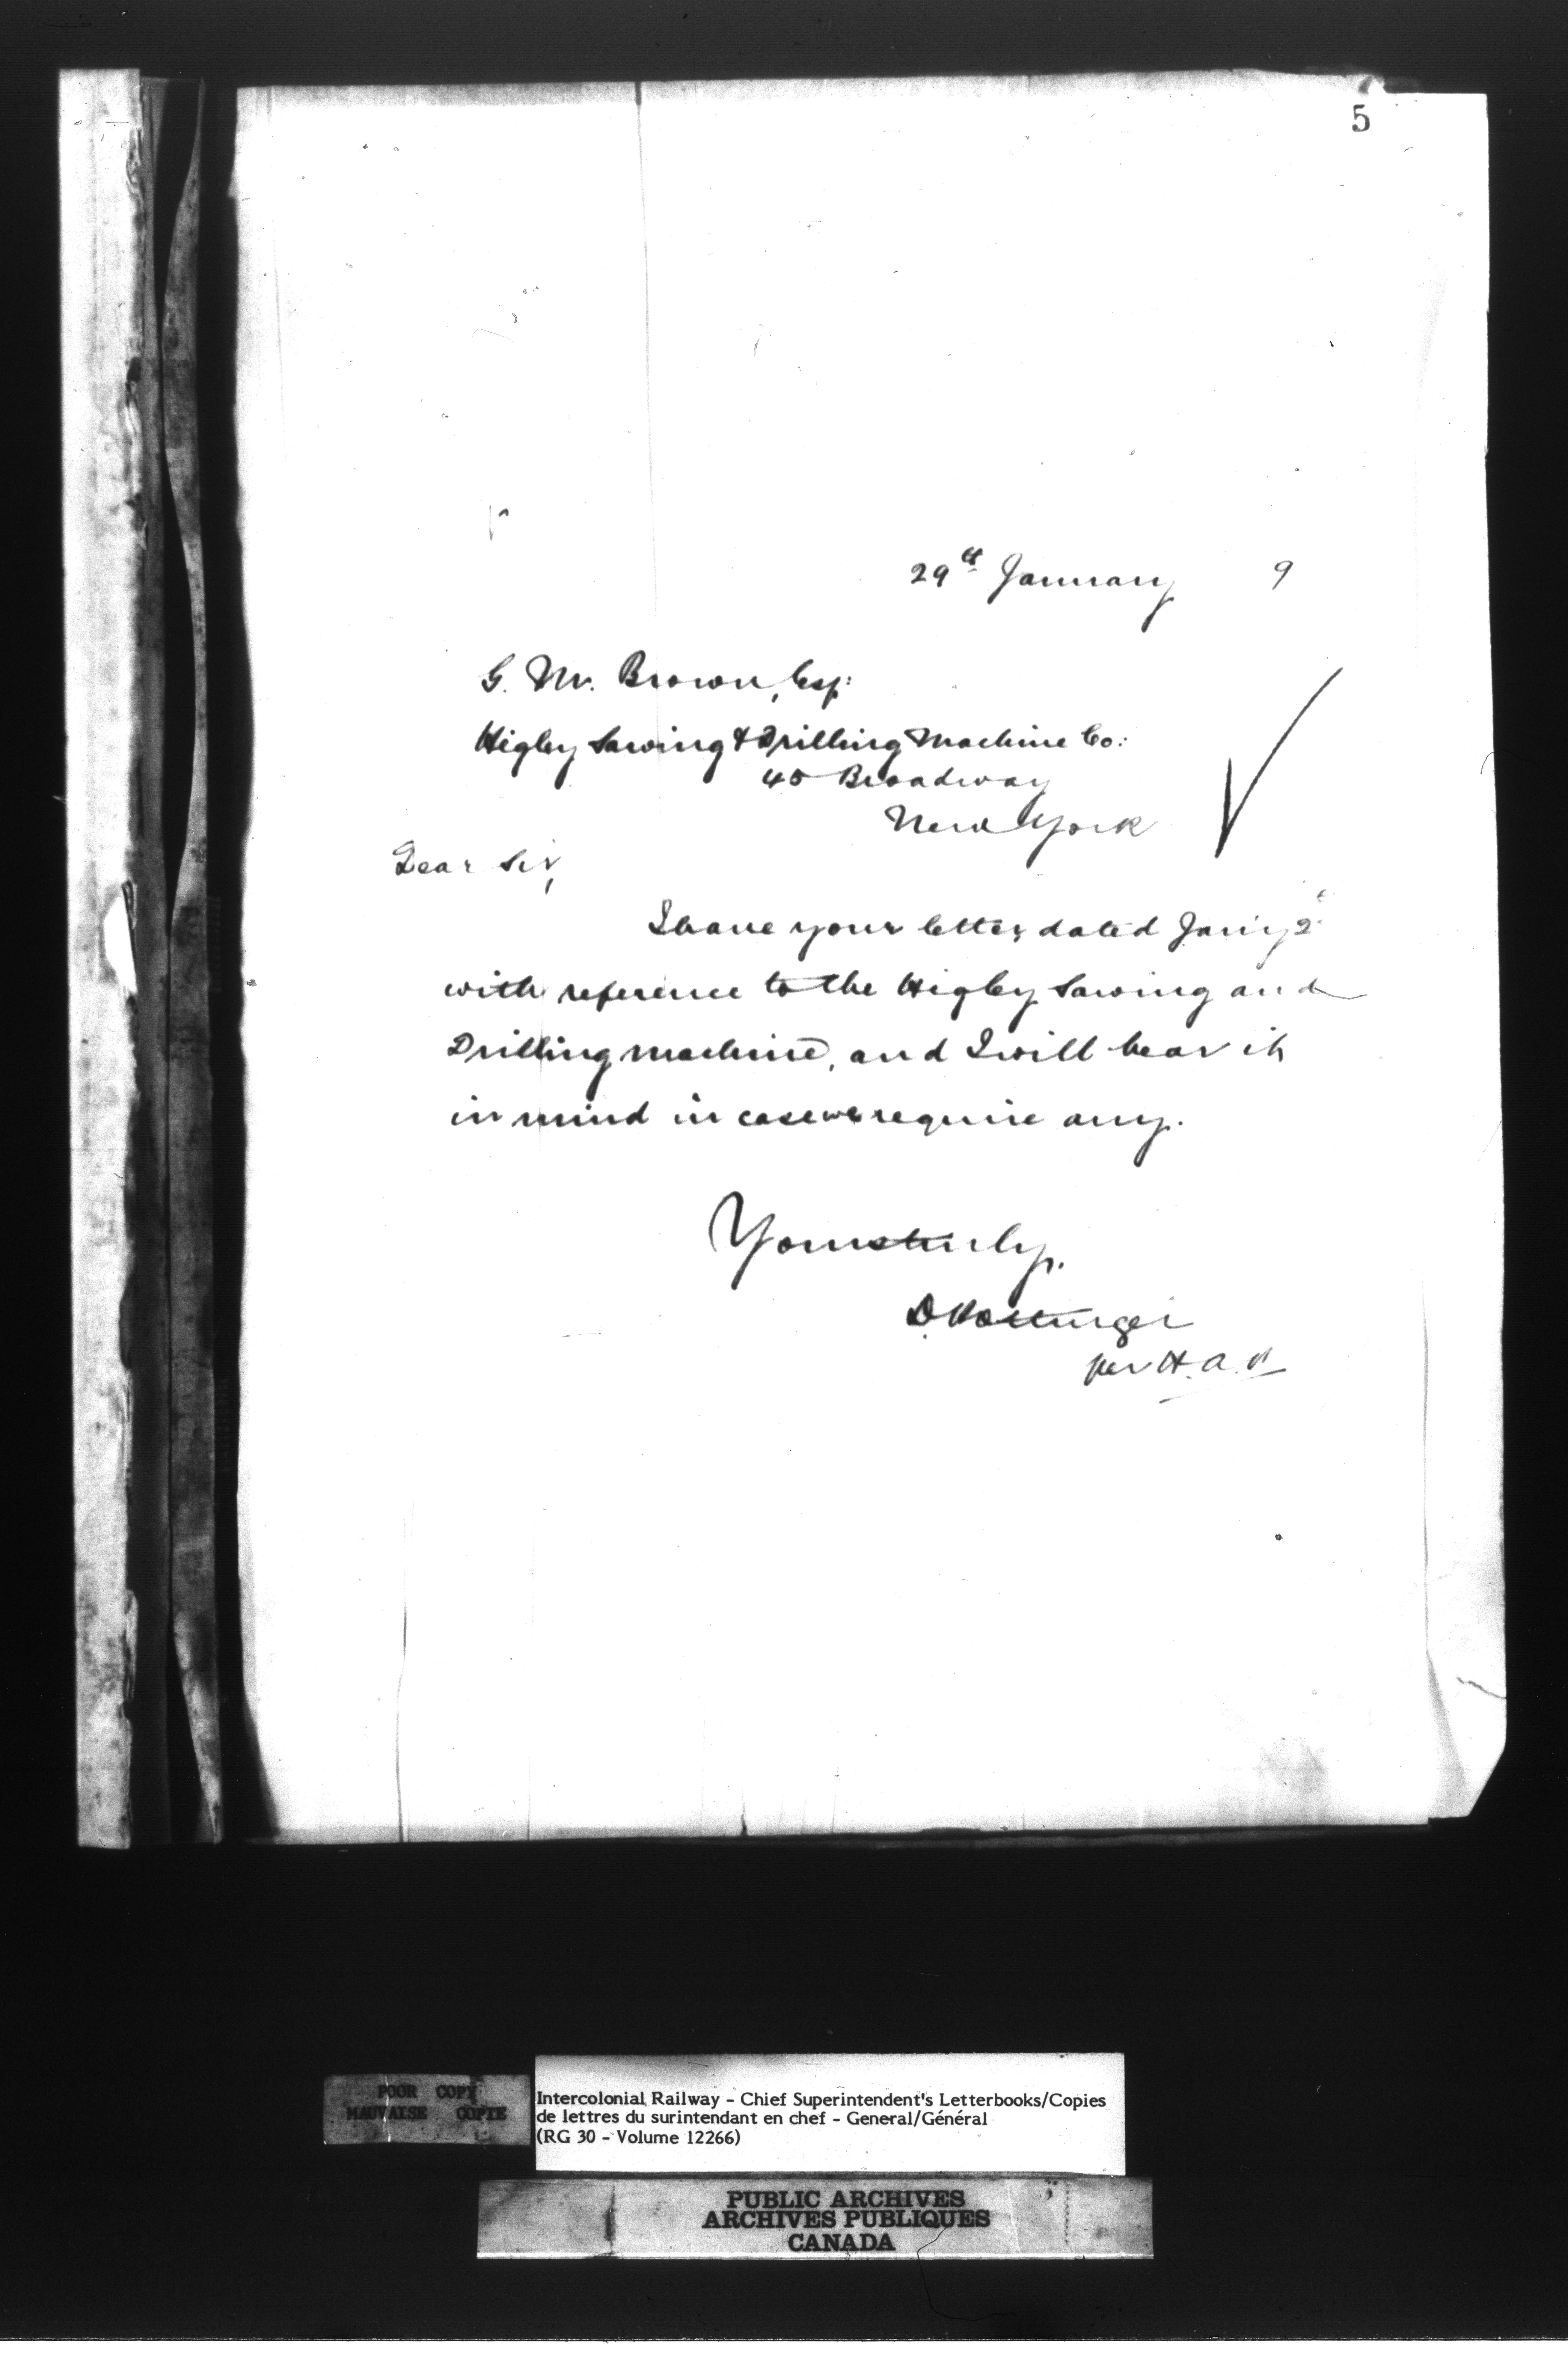 5
29th January 9
G. M. Brown, Esq:
Higley Sawing & Drilling Machine Co:
45 Broadway
New York
Dear Sir,
I have your letter dated Jan'y 2
with reference to the Higley Sawing and
Drilling machine, and I will bear it
in mind in case we require any.
Yours truly,
D. Pottinger
per H. A.
POOR COPY
MAUVAISE COPIE
Intercolonial Railway - Chief Superintendent's Letterbooks/Copies
de lettres du surintendant en chef - General/Général
(RG 30 - Volume 12266)
PUBLIC ARCHIVES
ARCHIVES PUBLIQUES
CANADA